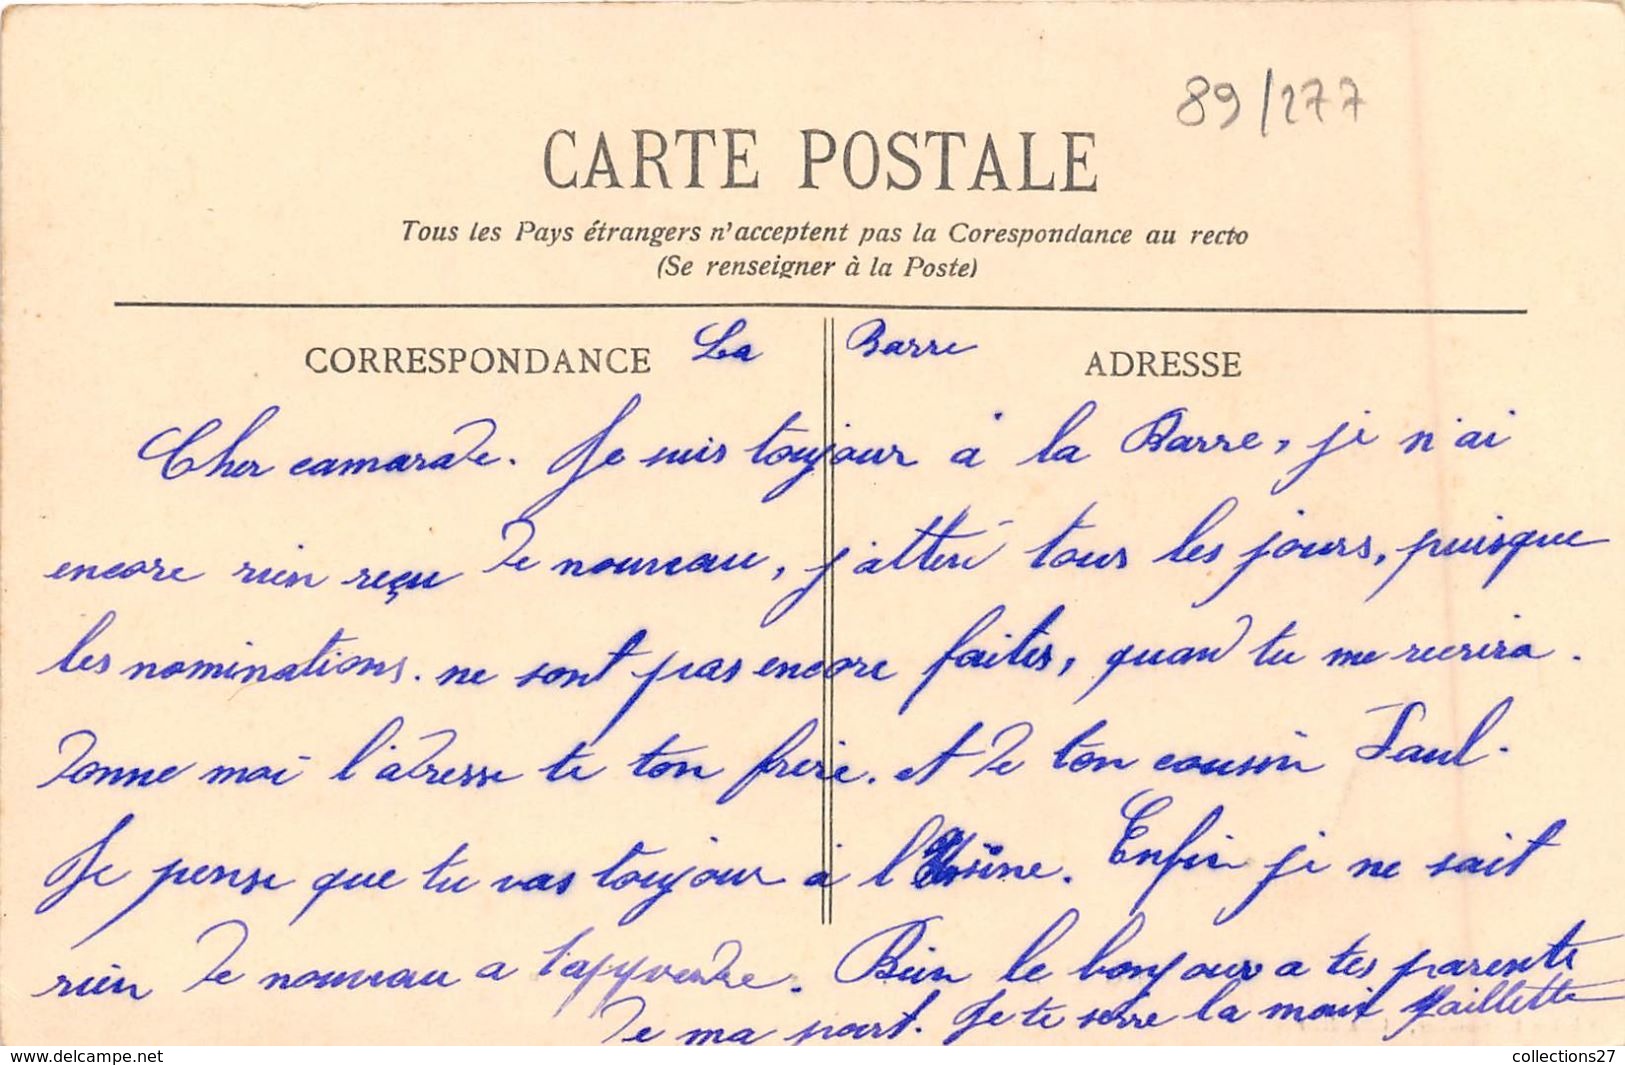 89/277
CARTE POSTALE
Tous les Pays étrangers n'acceptent pas la Corespondance au recto
(Se renseigner à la Poste)
CORRESPONDANCE La Barre ADRESSE
Cher camarade. Je suis toujour a la Barre, je n'ai
encore rien reçu de nouveau, j'atten tous les jours, puisque
les nominations. ne sont pas encore faites, quand tu me recrira.
Donne moi l'adresse te ton frère. et de ton cousin Paul.
Je pense que tu vas toujour a l'Usine. Enfin je ne sait
rien de nouveau a t'apprendre. Bien le bonjour a tes parents
de ma part. Je te serre la main
delcampe.net
collections27